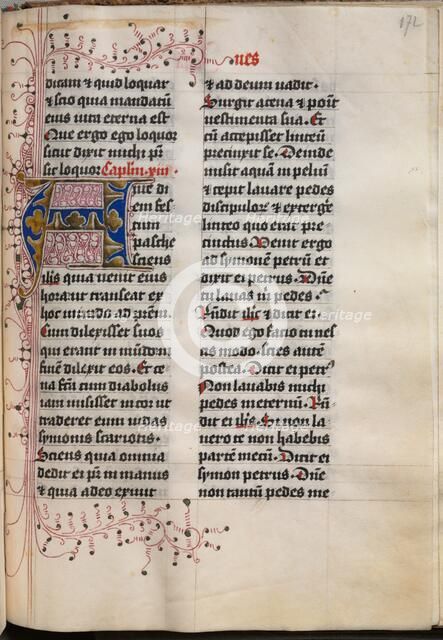 nes
172
dicam & quid loquar
& scio quia mandatū
eius vita eterna est
Que ergo ego loquor
sicut dixit michi pr̄
sic loquor Caplm. xiii.
Ante di
em fes
tum
pasche
sciens
ih̄s quia venit eius
hora ut transeat ex
hoc mundo ad prēm.
Cum dilexisset suos
qui erant in mūdo in
finē dilexit eos. Et ce
na fc̄ā cum diabolus
iam misisset in cor ut
traderet eum iudas
symonis scariotis.
Sciens quia omnia
dedit ei pr̄ in manus
& quia a deo exivit
& ad deum vadit.
Surgit a cena & ponit
vestimenta sua. Et
cū accepisset linteū
precinxit se. Deinde
misit aquam in peluī
& cepit lavare pedes
discipulorū & extergē
linteo quo erat pre
cinctus. Venit ergo
ad symonem petrū et
dixit ei petrus. Dn̄e
tu lavas m̄ pedes.
Rn̄dit ih̄s & dixit ei.
Quod ego facio tu nes
cis modo. scies autē
postea. Dicit ei petrꝰ
Non lavabis michi
pedes in eternum. Rn̄
dit ei ih̄s. Si non la
vero te non habebis
partē mecū. Dicit ei
symon petrus. Dn̄e
non tantū pedes me
Heritage
Images